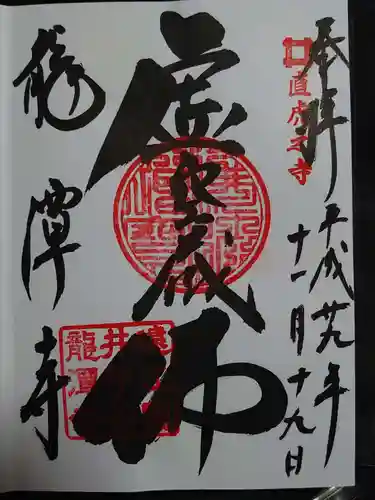 奉拝
直虎
寺
平成廿九年
十一月十九日
虚空蔵佛
龍潭寺
井
龍潭